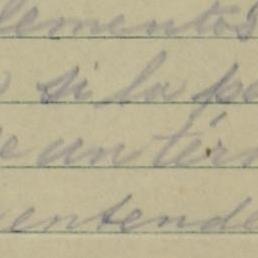 lementos
si la pe
e un tér
entende